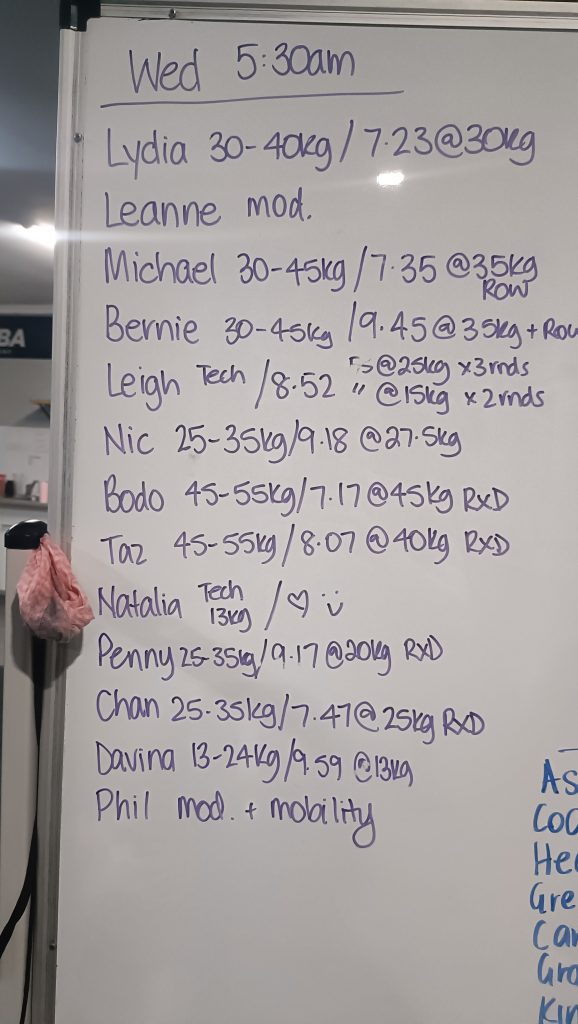 Wed 5:30am
Lydia 30-40kg / 7.23@30kg
Leanne mod.
Michael 30-45kg / 7.35 @35kg
ROW
Bernie 30-45kg / 9.45@35kg + Row
Leigh Tech / 8.52 @25kg x3rnds
" @15kg x2rnds
Nic 25-35kg / 9.18 @27.5kg
Bodo 45-55kg / 7.17@45kg RxD
Taz 45-55kg / 8.07 @40kg RxD
Natalia Tech 13kg / ♡ :)
Penny 25-35kg / 9.17 @20kg RxD
Chan 25-35kg / 7.47@25kg RxD
Davina 13-24kg / 9.59 @13kg
Phil mod. + mobility
BA
As
Coo
Hea
Gre
Car
Gra
Kin